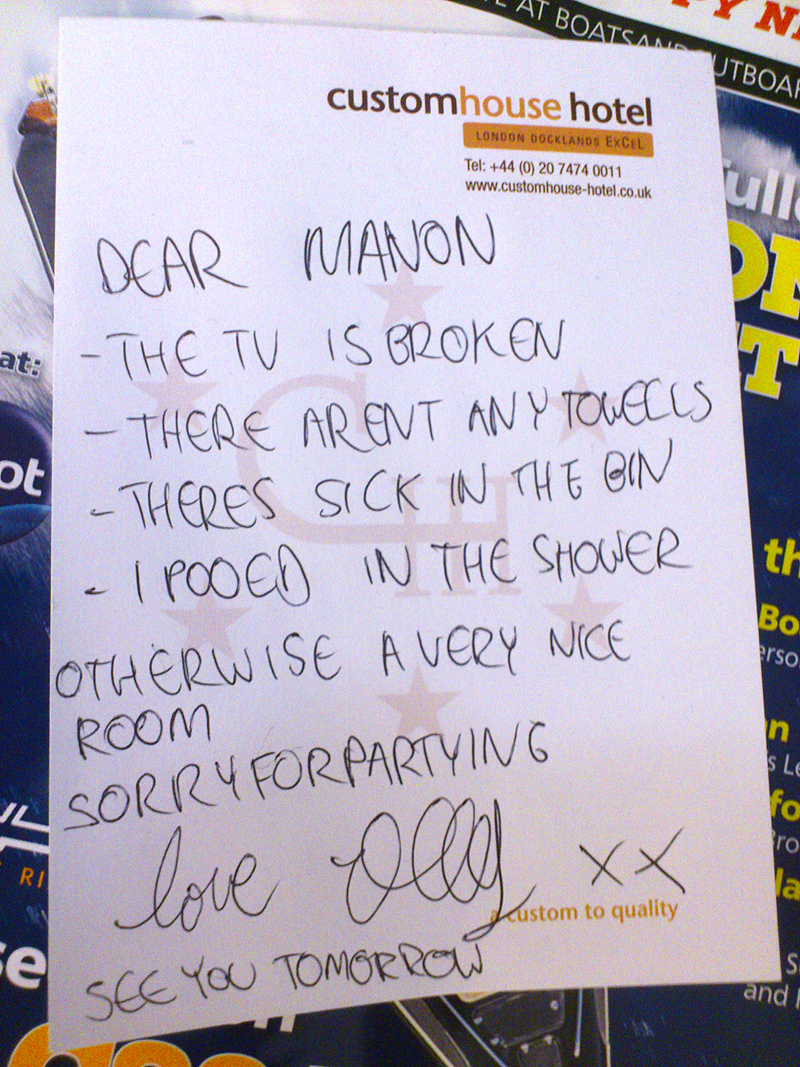 E AT BOATSAND
UTBOAR
PY N
customhouse hotel
LONDON DOCKLANDS ExCeL
Tel: +44 (0) 20 7474 0011
www.customhouse-hotel.co.uk
DEAR MANON
- THE TV IS BROKEN
- THERE ARENT ANY TOWELLS
- THERES SICK IN THE BIN
- I POOED IN THE SHOWER
OTHERWISE A VERY NICE
ROOM
SORRY FOR PARTYING
love Olly XX
a custom to quality
SEE YOU TOMORROW
at:
ot
RI
se
full
ON
T
th
Bo
erso
n
s Le
fo
ro
la
S
and